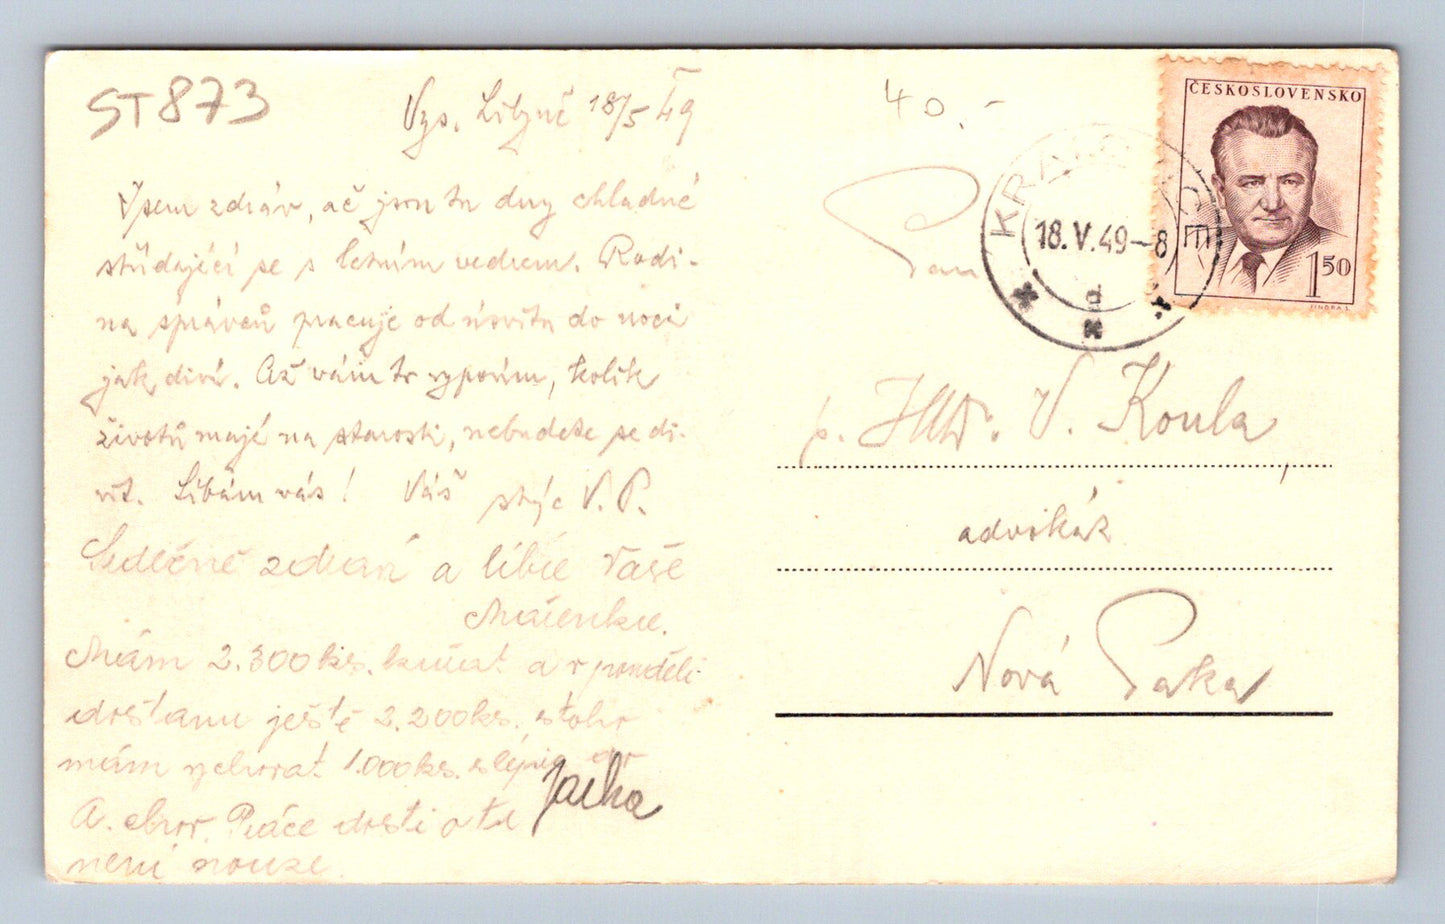 ST873
Vys. Libyně 18/5 49
40.-
Jsem zdráv, ač jsou tu dny chladné
střídající se s letním vedrem. Rodi-
na správců pracuje od úsvitu do noci
jak diví. Až vám to vypovím, kolik
životů mají na starosti, nebudete se di-
vit. Líbám vás! Váš strýc V. P.
Srdečně zdraví a líbá Vaše
Mařenka.
Mám 2.300 ks. kuřat a v pondělí
dostanu ještě 2.200 ks. z toho
mám vychovat 1.000 ks. slepic do
A. chov. Práce dosti o tu
není nouze.
Jarka
ČESKOSLOVENSKO
1 50
JINDRA S.
KRALOVICE
18.V.49-8
Pan
p. JUDr. V. Koula,
advokát
Nová Paka